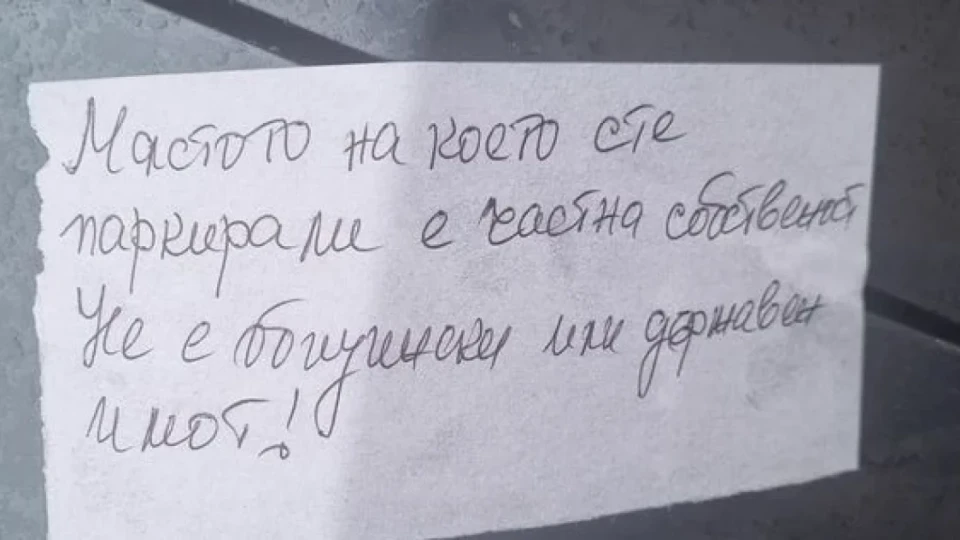 Мястото на което сте
паркирали е частна собственост
Не е общински или държавен
имот!